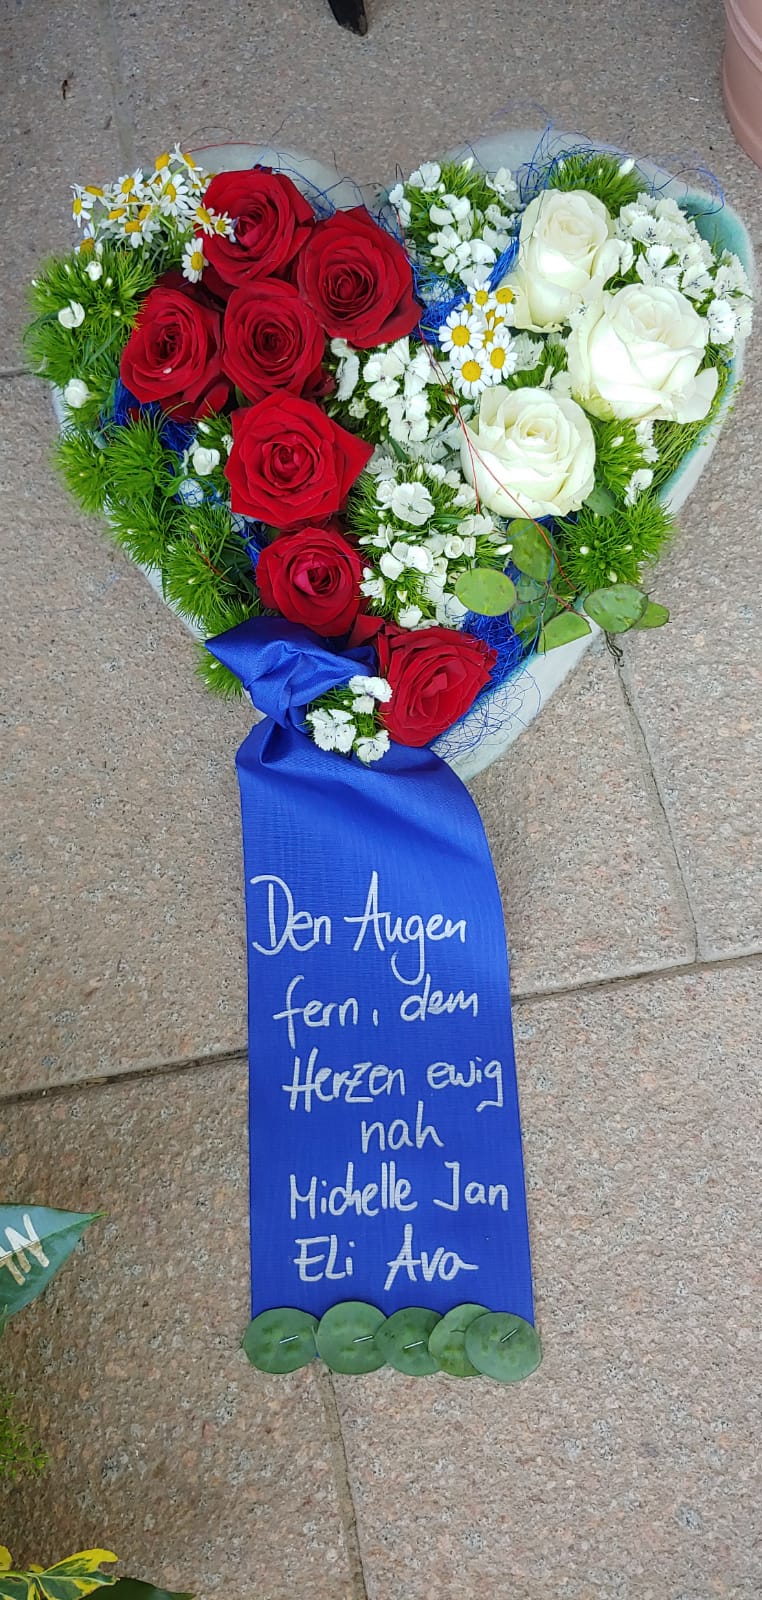 Den Augen
fern, dem
Herzen ewig
nah
Michelle Jan
Eli Ava